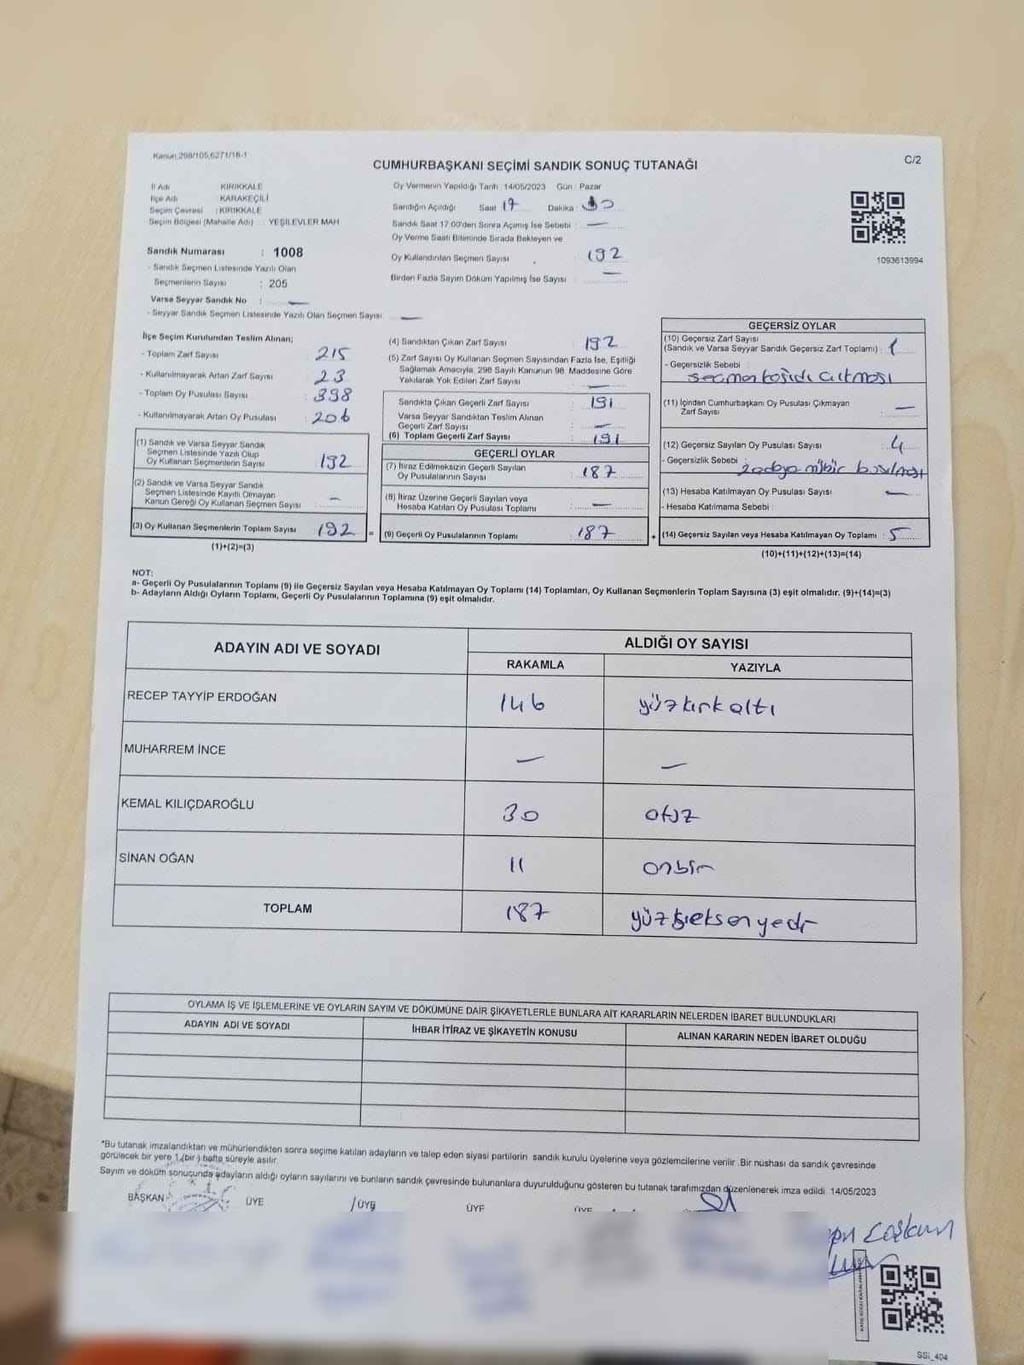 Kanun:298/105,6271/16-1
CUMHURBAŞKANI SEÇİMİ SANDIK SONUÇ TUTANAĞI
C/2
İl Adı KIRIKKALE
İlçe Adı KARAKEÇİLİ
Seçim Çevresi : KIRIKKALE
Seçim Bölgesi (Mahalle Adı) : YEŞİLEVLER MAH
Sandık Numarası : 1008
- Sandık Seçmen Listesinde Yazılı Olan
Seçmenlerin Sayısı : 205
Varsa Seyyar Sandık No : —
- Seyyar Sandık Seçmen Listesinde Yazılı Olan Seçmen Sayısı —
Oy Vermenin Yapıldığı Tarih 14/05/2023 Gün : Pazar
Sandığın Açıldığı Saat 17 Dakika
Sandık Saat 17.00'den Sonra Açılmış İse Sebebi : —
Oy Verme Saati Bitiminde Sırada Bekleyen ve
Oy Kullandırılan Seçmen Sayısı : 192
Birden Fazla Sayım Döküm Yapılmış İse Sayısı —
1093613994
İlçe Seçim Kurulundan Teslim Alınan;
- Toplam Zarf Sayısı 215
- Kullanılmayarak Artan Zarf Sayısı : 23
- Toplam Oy Pusulası Sayısı : 398
- Kullanılmayarak Artan Oy Pusulası : 206
(1) Sandık ve Varsa Seyyar Sandık
Seçmen Listesinde Yazılı Olup
Oy Kullanan Seçmenlerin Sayısı : 192
(2) Sandık ve Varsa Seyyar Sandık
Seçmen Listesinde Kayıtlı Olmayan
Kanun Gereği Oy Kullanan Seçmen Sayısı : —
(3) Oy Kullanan Seçmenlerin Toplam Sayısı : 192 =
(1)+(2)=(3)
(4) Sandıktan Çıkan Zarf Sayısı : 192
(5) Zarf Sayısı Oy Kullanan Seçmen Sayısından Fazla İse, Eşitliği
Sağlamak Amacıyla, 298 Sayılı Kanunun 98. Maddesine Göre
Yakılarak Yok Edilen Zarf Sayısı : —
Sandıkta Çıkan Geçerli Zarf Sayısı : 191
Varsa Seyyar Sandıktan Teslim Alınan
Geçerli Zarf Sayısı : —
(6) Toplam Geçerli Zarf Sayısı : 191
GEÇERLİ OYLAR
(7) İtiraz Edilmeksizin Geçerli Sayılan
Oy Pusulalarının Sayısı : 187
(8) İtiraz Üzerine Geçerli Sayılan veya
Hesaba Katılan Oy Pusulası Toplamı : —
(9) Geçerli Oy Pusulalarının Toplamı : 187 +
GEÇERSİZ OYLAR
(10) Geçersiz Zarf Sayısı
(Sandık ve Varsa Seyyar Sandık Geçersiz Zarf Toplamı) : 1
- Geçersizlik Sebebi :
(11) İçinden Cumhurbaşkanı Oy Pusulası Çıkmayan
Zarf Sayısı : —
(12) Geçersiz Sayılan Oy Pusulası Sayısı : 4
- Geçersizlik Sebebi :
(13) Hesaba Katılmayan Oy Pusulası Sayısı : —
- Hesaba Katılmama Sebebi :
(14) Geçersiz Sayılan veya Hesaba Katılmayan Oy Toplamı : 5
(10)+(11)+(12)+(13)=(14)
NOT:
a- Geçerli Oy Pusulalarının Toplamı (9) ile Geçersiz Sayılan veya Hesaba Katılmayan Oy Toplamı (14) Toplamları, Oy Kullanan Seçmenlerin Toplam Sayısına (3) eşit olmalıdır. (9)+(14)=(3)
b- Adayların Aldığı Oyların Toplamı, Geçerli Oy Pusulalarının Toplamına (9) eşit olmalıdır.
ADAYIN ADI VE SOYADI ALDIĞI OY SAYISI
RAKAMLA YAZIYLA
RECEP TAYYİP ERDOĞAN 146 yüzkırkaltı
MUHARREM İNCE — —
KEMAL KILIÇDAROĞLU 30 otuz
SİNAN OĞAN 11 onbir
TOPLAM 187 yüzseksenyedi
OYLAMA İŞ VE İŞLEMLERİNE VE OYLARIN SAYIM VE DÖKÜMÜNE DAİR ŞİKAYETLERLE BUNLARA AİT KARARLARIN NELERDEN İBARET BULUNDUKLARI
ADAYIN ADI VE SOYADI İHBAR İTİRAZ VE ŞİKAYETİN KONUSU ALINAN KARARIN NEDEN İBARET OLDUĞU
*Bu tutanak imzalandıktan ve mühürlendikten sonra seçime katılan adayların ve talep eden siyasi partilerin sandık kurulu üyelerine veya gözlemcilerine verilir. Bir nüshası da sandık çevresinde
görülecek bir yere 1 (bir) hafta süreyle asılır.
Sayım ve döküm sonucunda adayların aldığı oyların sayılarını ve bunların sandık çevresinde bulunanlara duyurulduğunu gösteren bu tutanak tarafımızdan düzenlenerek imza edildi. 14/05/2023
BAŞKAN ÜYE ÜYE ÜYE ÜYE
SSİ_404